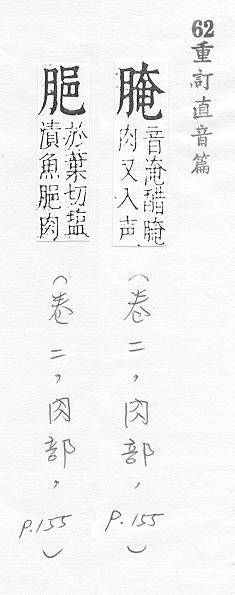 62重訂直音篇
腌
音淹醋腌
肉又入声
(卷二,肉部,
P.155)
脃
於業切塩
漬魚脃肉
(卷二,肉部,
P.155)